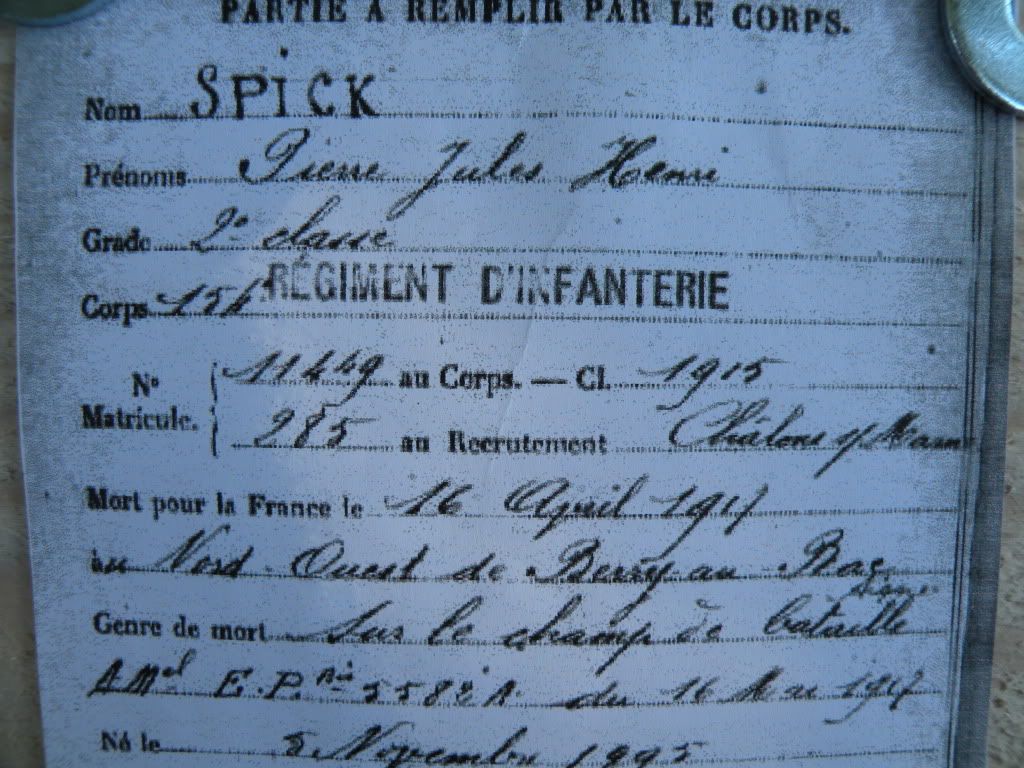 PARTIE A REMPLIR PAR LE CORPS.
Nom SPiCK
Prénoms Pierre Jules Henri
Grade 2e classe
Corps 154 RÉGIMENT D'INFANTERIE
No Matricule. 11449 au Corps. — Cl. 1915
985 au Recrutement Châlons s/ Marne
Mort pour la France le 16 April 1917
au Nord Ouest de Berry au Bac
Aisne
Genre de mort sur le champ de bataille
A Mel E.P. 5582 A du 16 Mai 1917
Né le 5 Novembre 1895